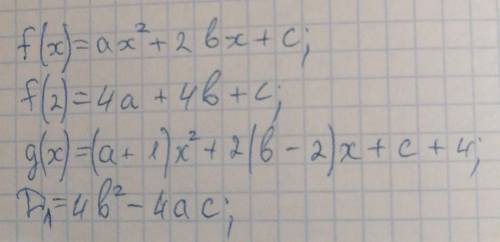 f(x)=ax²+2вx+c;
f(2)=4a+4в+c;
g(x)=(a+1)x²+2(в-2)x+c+4;
D₁=4в²-4ac;